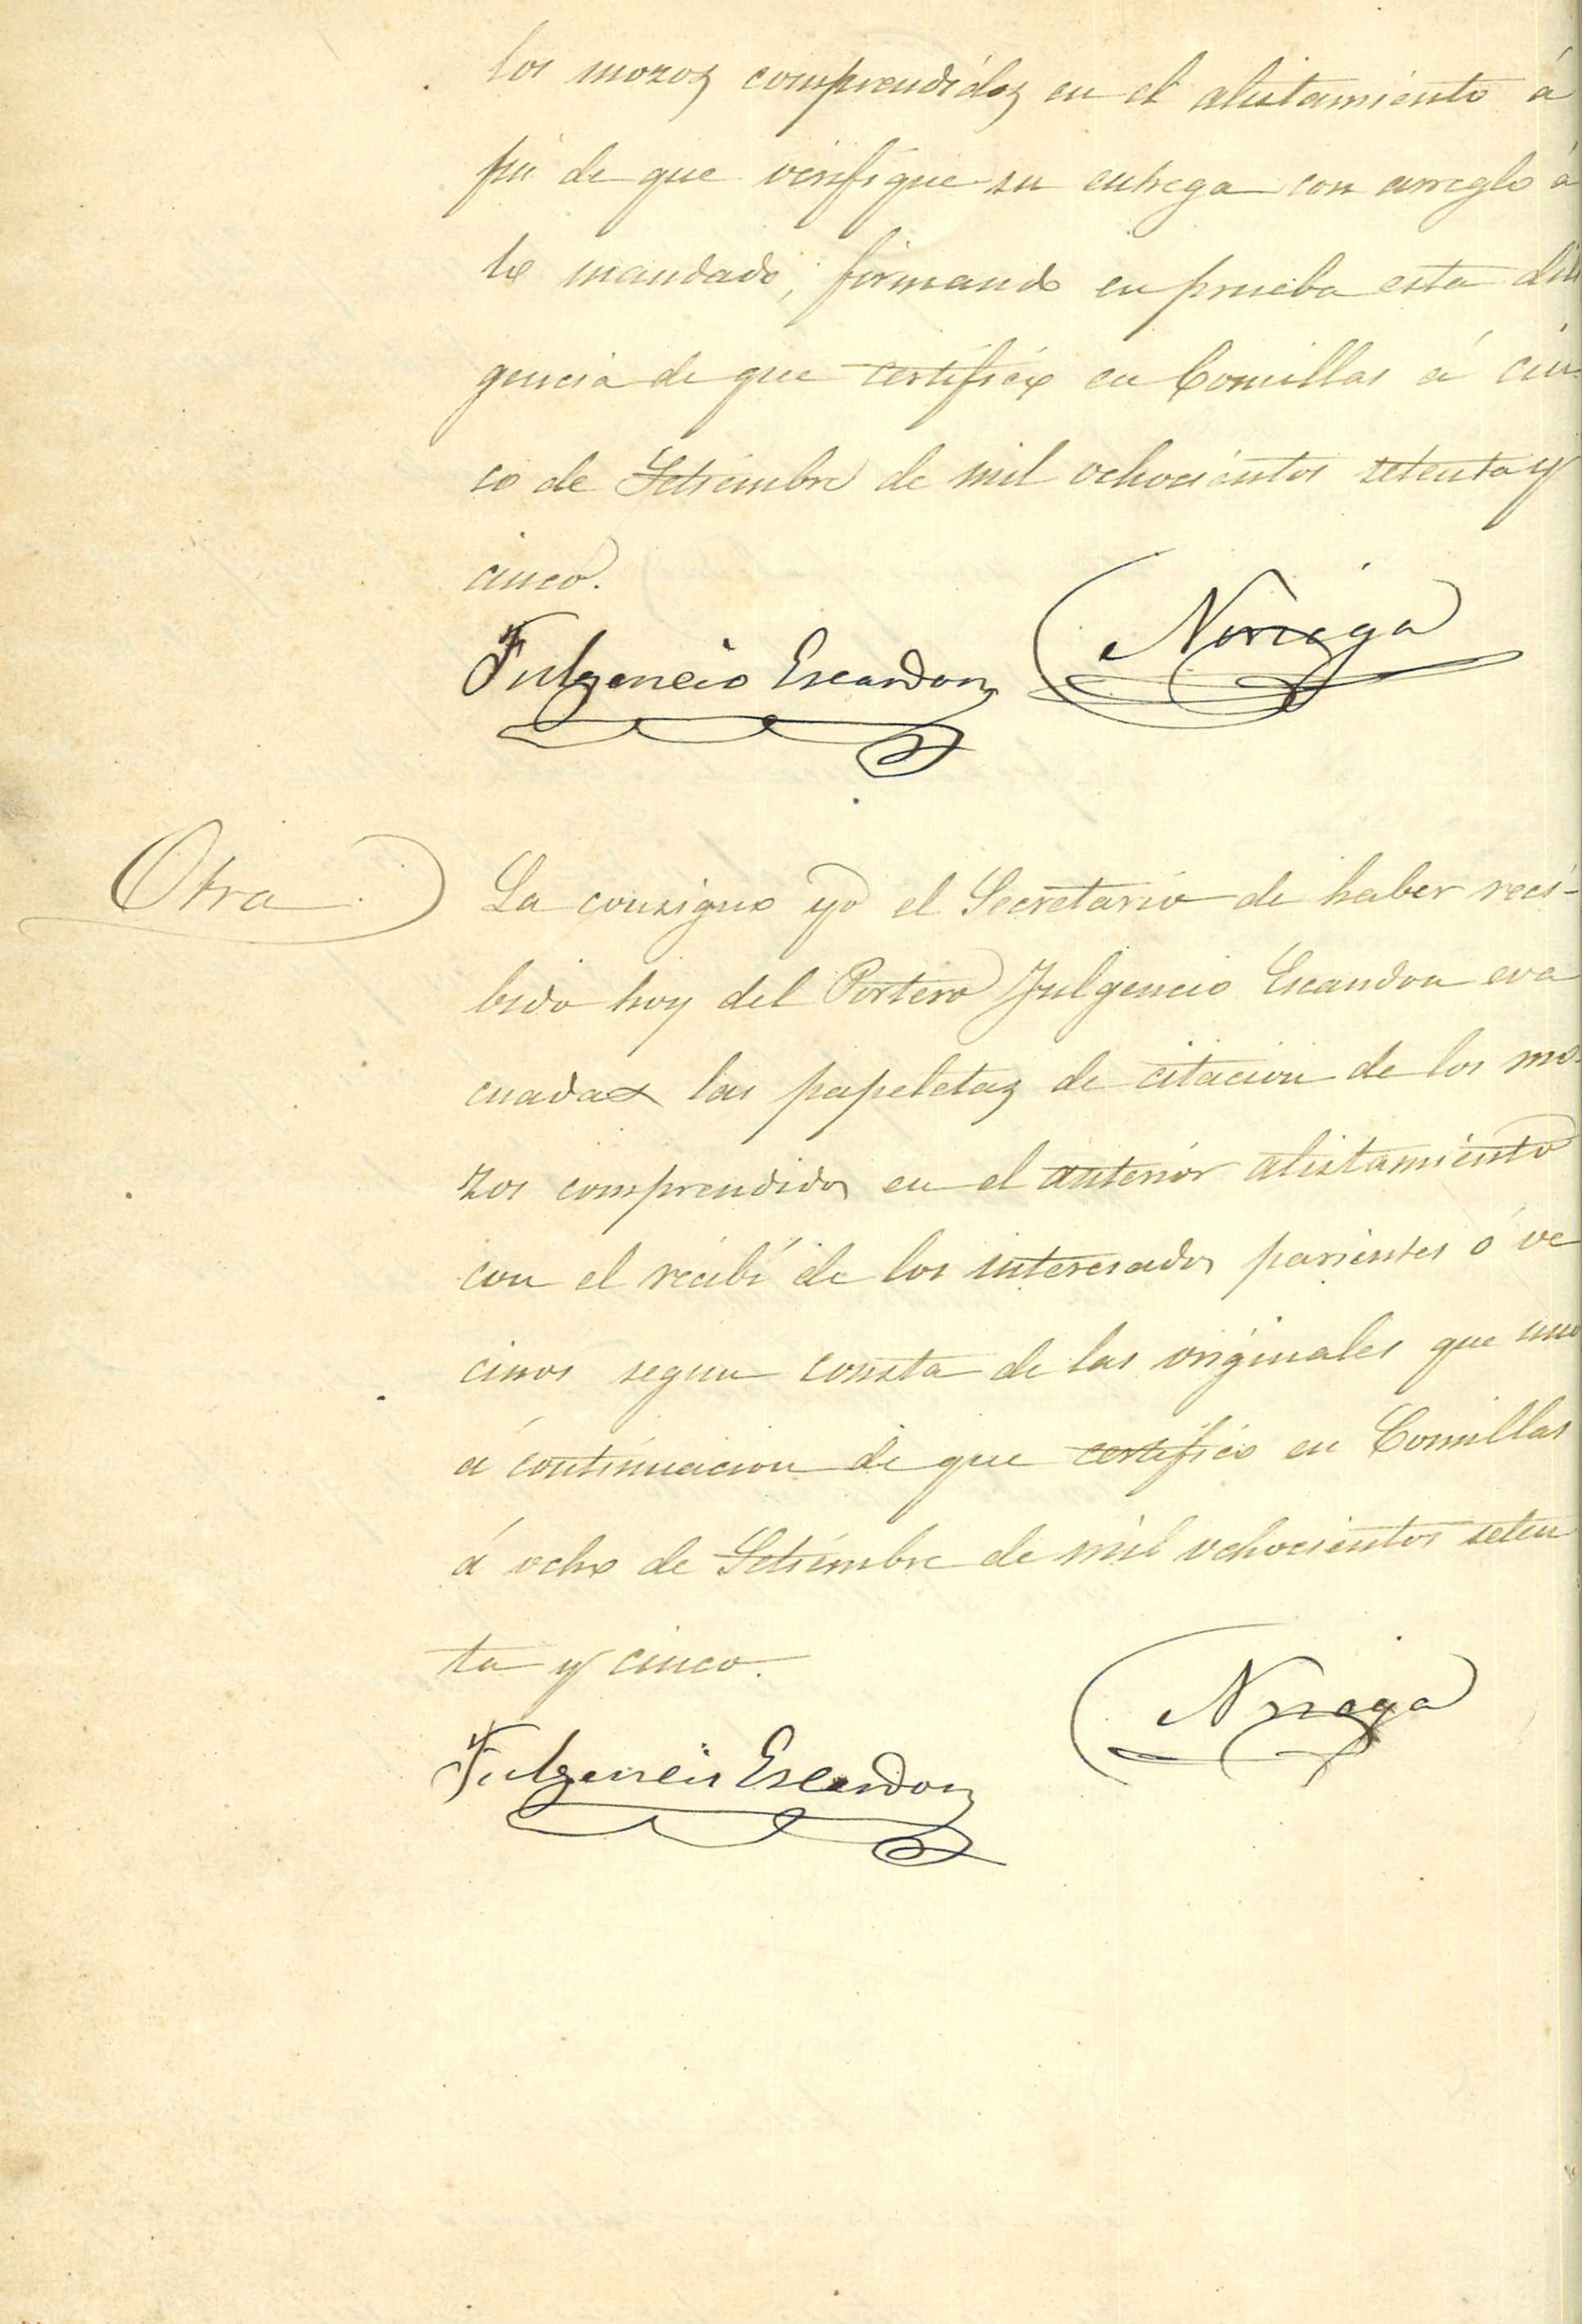 los mozos comprendidos en el alistamiento á
fin de que verifique su entrega con arreglo á
lo mandado; firmando en prueba esta dili
gencia de que certifico en Comillas á cin-
co de Setiembre de mil ochocientos setenta y
cinco.
Fulgencio Escandon Noriega
Otra. La consigno yo el Secretario de haber reci-
bido hoy del Portero Fulgencio Escandon eva
cuadas las papeletas de citacion de los mo-
zos comprendidos en el anterior alistamiento
con el recibí de los interesados parientes ó ve
cinos segun consta de las originales que uno
á continuacion de que certifico en Comillas
á ocho de Setiembre de mil ochocientos seten
ta y cinco.
Fulgencio Escandon Noriega